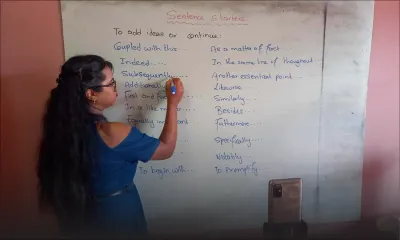 Sentence Starters
To add ideas or continue:
Coupled with this... As a matter of fact
Indeed.... In the same line of thought
Subsequently.... Another essential point...
Additionally Likewise...
First and Similarly...
In a like Besides...
Equally Furthermore...
Specifically...
Notably
To begin with... To exemplify